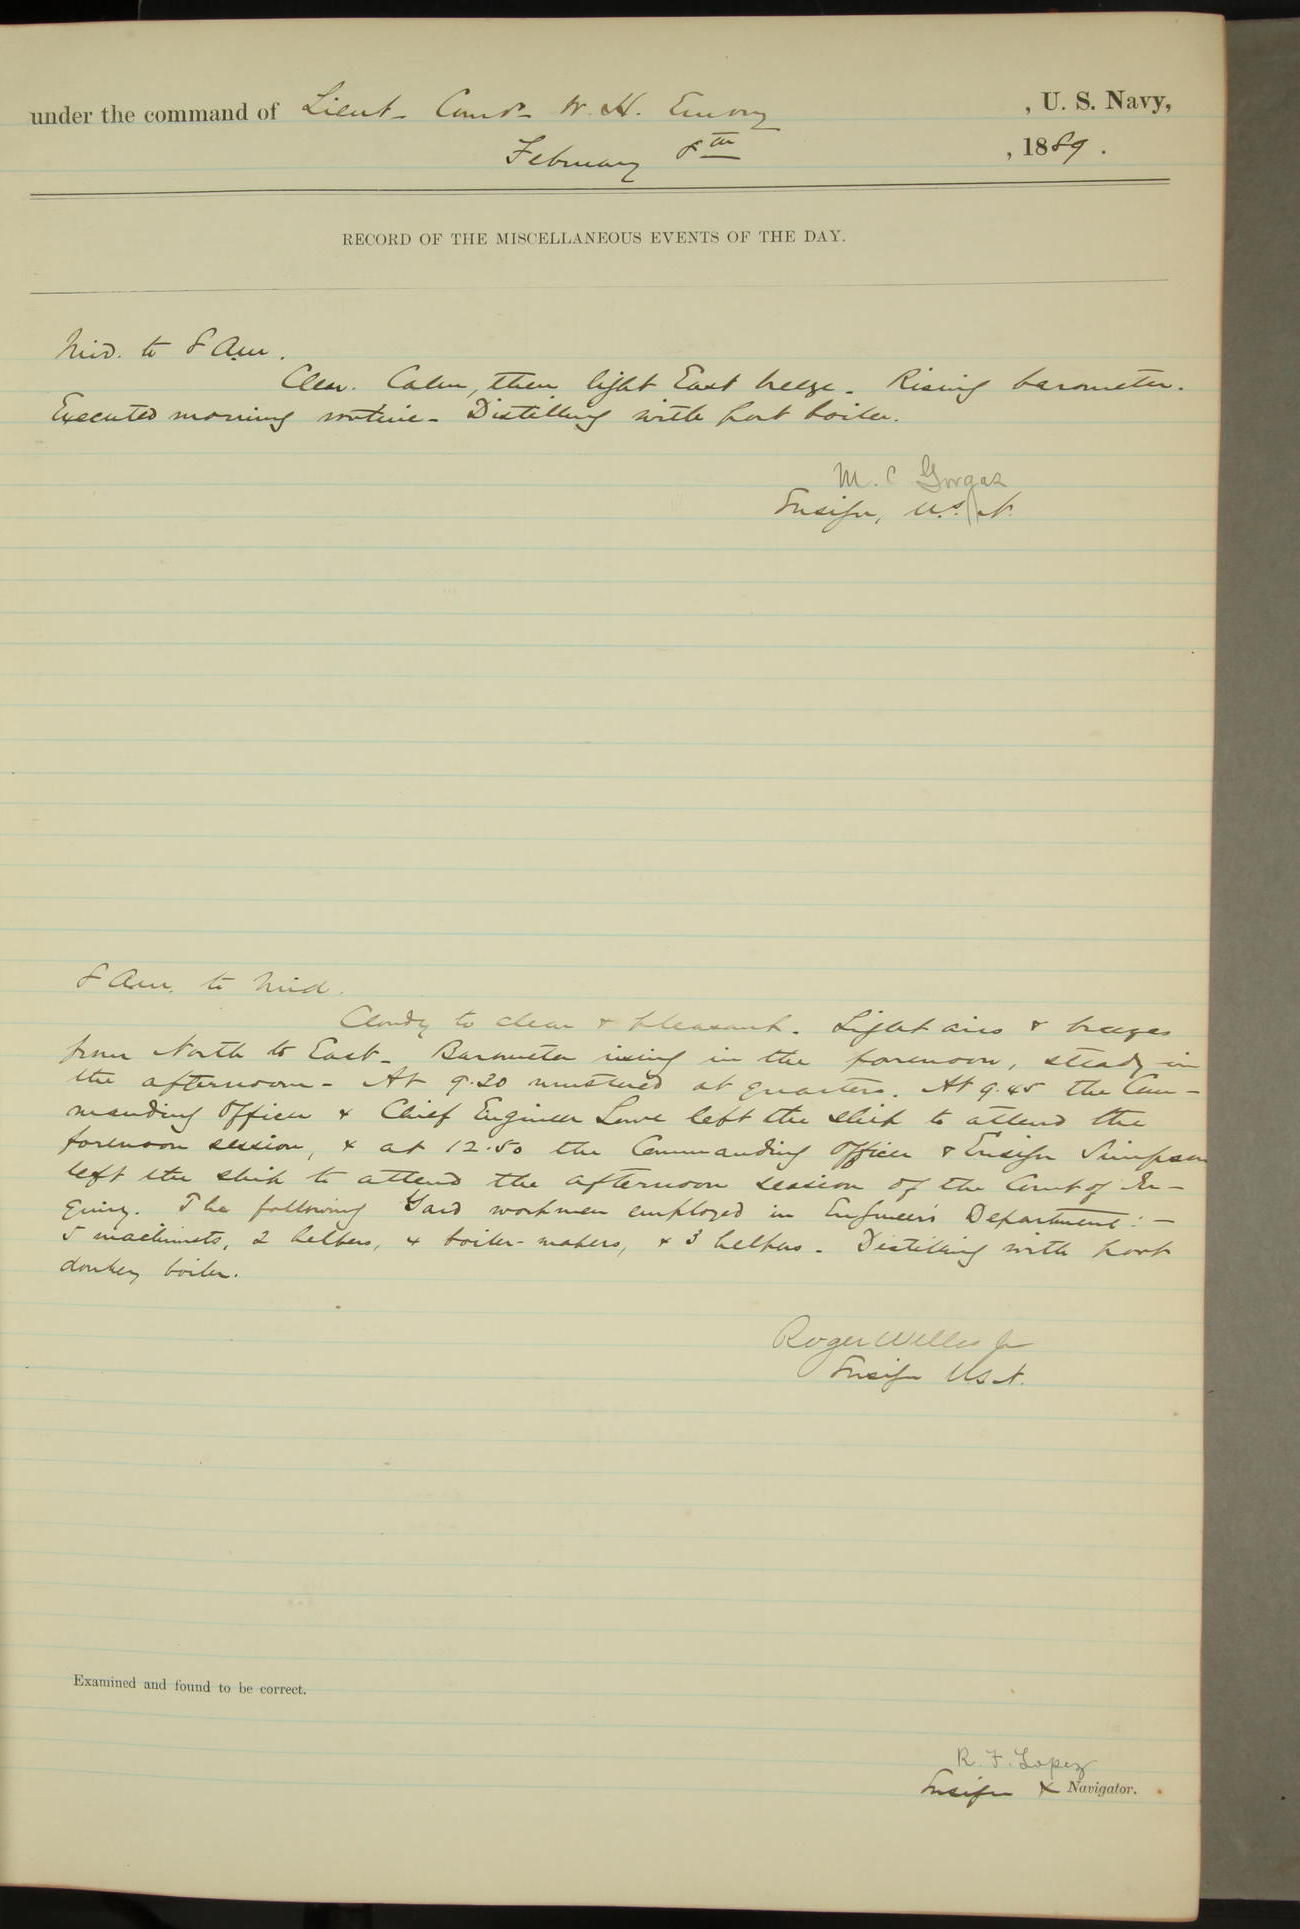 under the command of Lieut- Comd'r- W. H. Emory, U. S. Navy,
February 8th, 1889.
RECORD OF THE MISCELLANEOUS EVENTS OF THE DAY.
Mid. to 8 A.m.
Clear. Calm, then light East breeze- Rising barometer.
Executed morning routine- Distilling with port boiler.
M. C Gorgas
Ensign, U.S.N.
8 A.m. to Mid.
Cloudy to clear & pleasant. Light airs & breezes
from North to East- Barometer rising in the forenoon, steady in
the afternoon- At 9.20 mustered at quarters. At 9.45 the Com-
manding Officer & Chief Engineer Lowe left the ship to attend the
forenoon session, & at 12.50 the Commanding Officer & Ensign Simpson
left the ship to attend the afternoon session of the Court of In-
quiry. The following Yard workmen employed in Engineer's Department:-
5 machinists, 2 helpers, 4 boiler-makers, & 3 helpers- Distilling with port
donkey boiler.
Roger Welles Jr
Ensign U.S.N.
Examined and found to be correct.
R. F. Lopez
Ensign & Navigator.